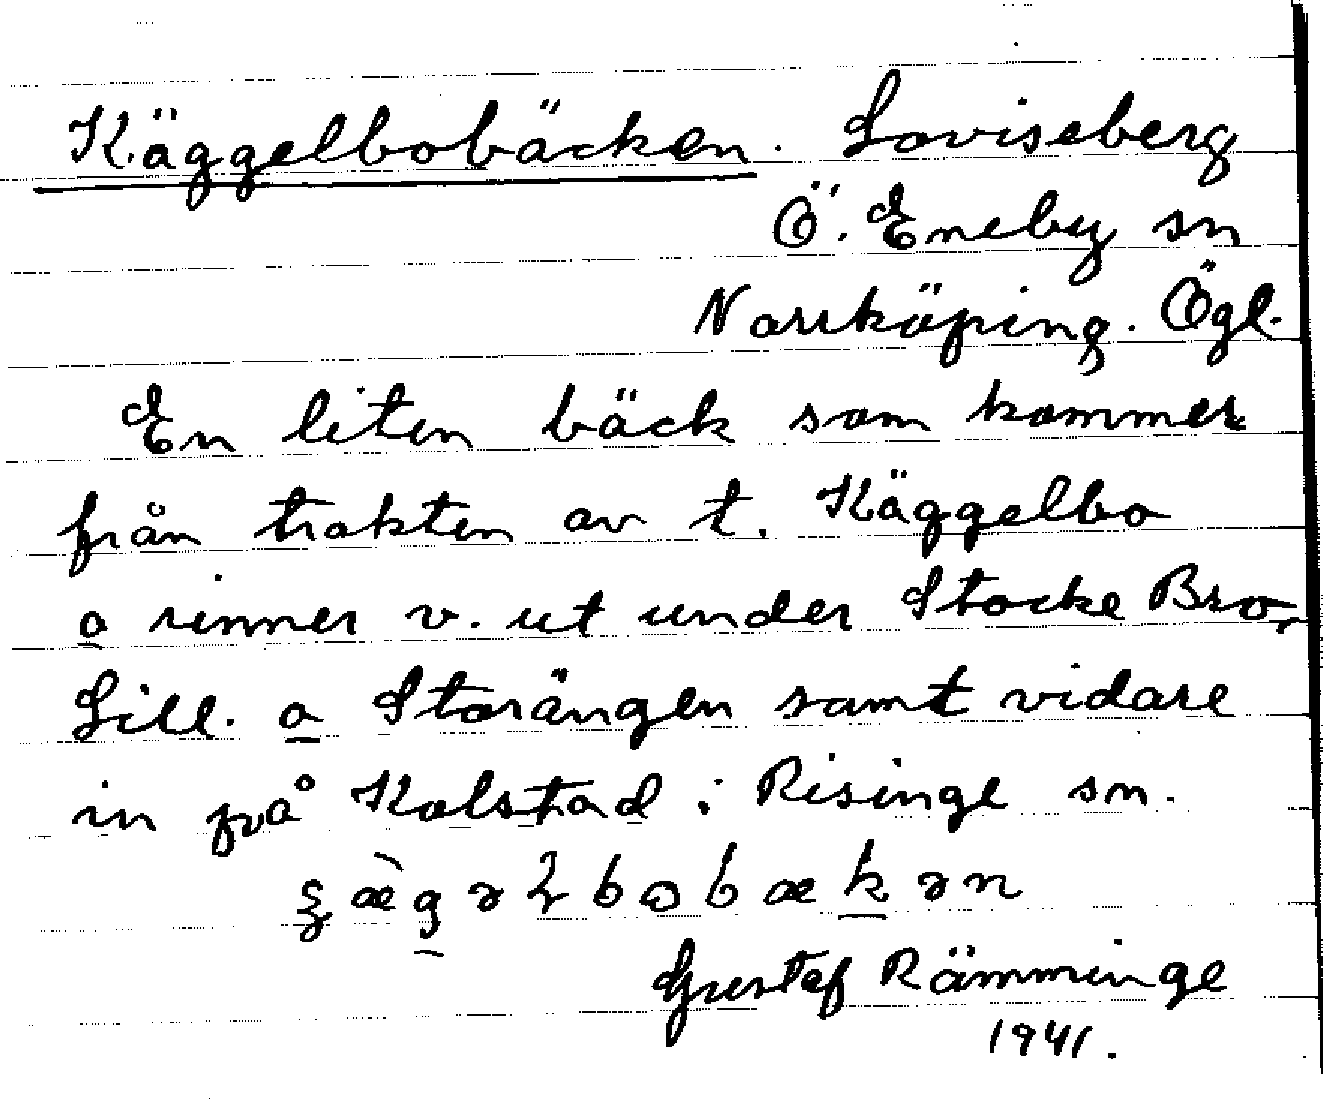 Käggelbobäcken. Loviseberg
Ö. Eneby sn
Norrköping. Ögl.
En liten bäck som kommer
från trakten av t. Käggelbo
o rinner v. ut under Stocke Bro,
Lill. o Storängen samt vidare
in på Kolstad i Risinge sn.
Gustaf Rämminge
1941.